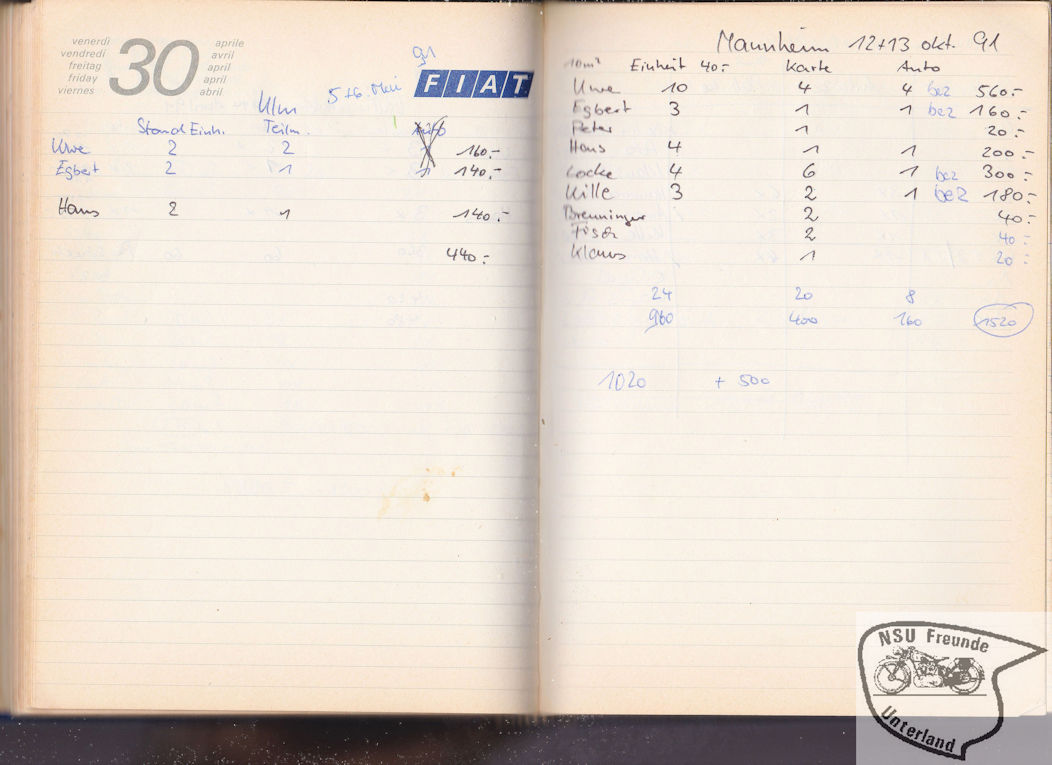 venerdì aprile
vendredi avril
freitag 30 april
friday april
viernes abril
91
FIAT
Ulm 5+6 Mai
Stand Einh. Teiln.
Uwe 2 2 160.-
Egbert 2 1 1 140.-
Hans 2 1 140.-
440.-
Mannheim 12+13 Okt. 91
10m² Einheit 40.- Karte Auto
Uwe 10 4 4 bez 560.-
Egbert 3 1 1 bez 160.-
Peter 1 20.-
Hans 4 1 1 200.-
Locke 4 6 1 bez 300.-
Kille 3 2 1 bez 180.-
Brenninger 2 40.-
Fisch 2 40.-
Klaus 1 20.-
24 20 8
960 400 160 1520
1020 + 500
NSU Freunde
Unterland